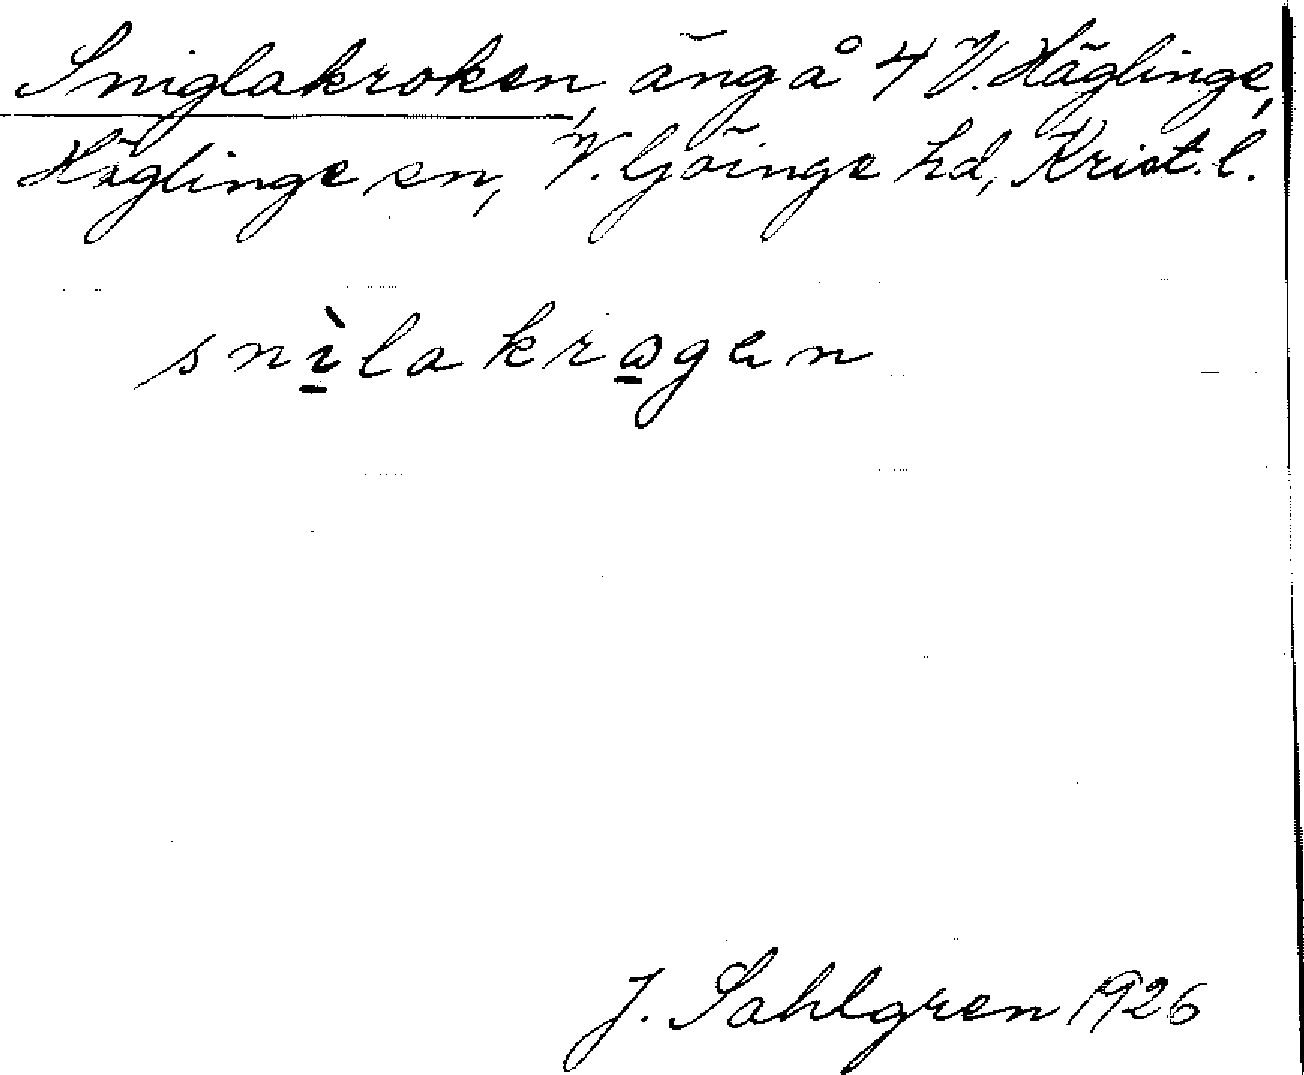 Sniglakroken, äng å 4 V. Häglinge,
Häglinge sn, V. Göinge hd, Krist. l.
snìlakrogen
J. Sahlgren 1926